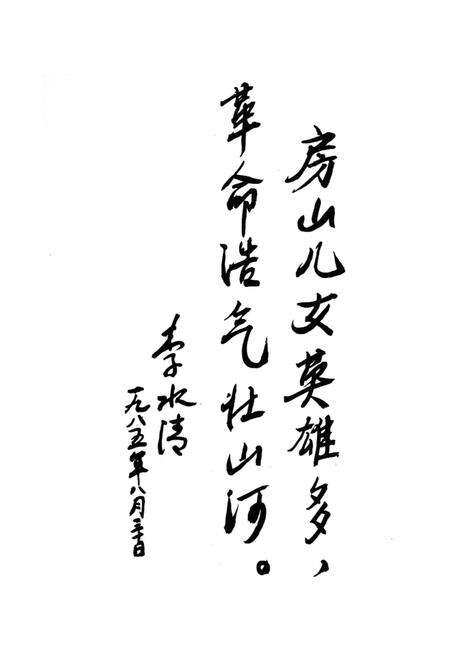 房山儿女英雄多，
革命浩气壮山河。
李水清
一九八五年八月三十日